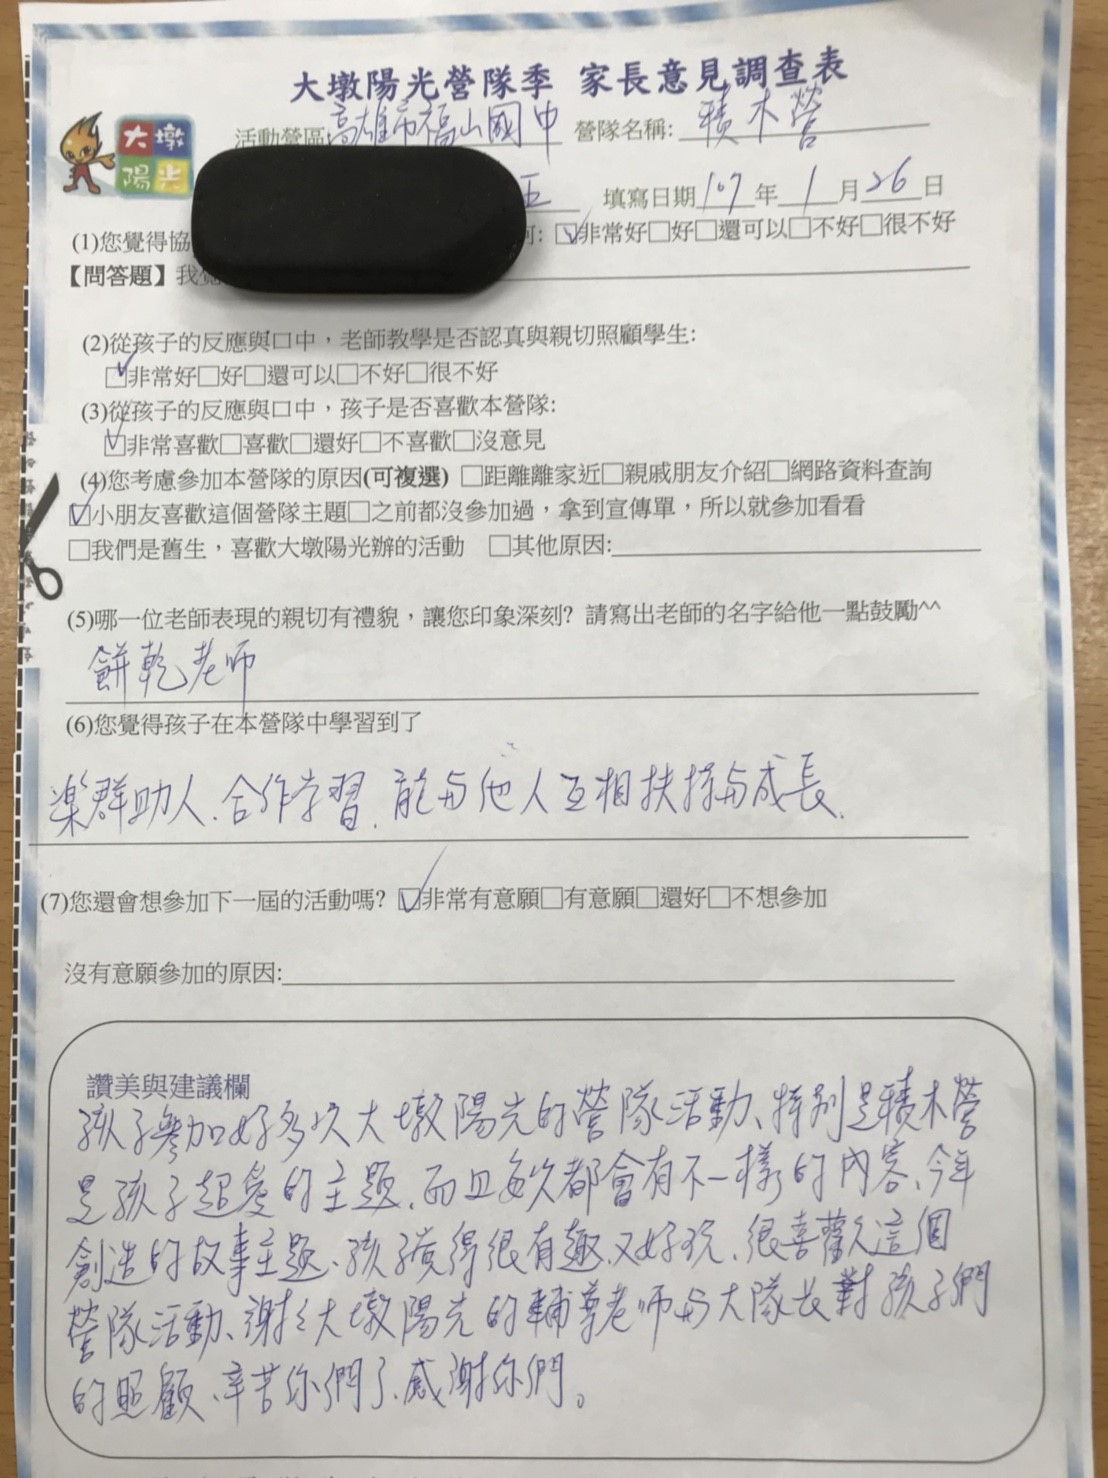 大墩陽光營隊季 家長意見調查表
大墩
陽光
活動營區:高雄市福山國中 營隊名稱: 積木營
五 填寫日期107年1月26日
(1)您覺得協 何: ☑非常好□好□還可以□不好□很不好
【問答題】我覺
(2)從孩子的反應與口中，老師教學是否認真與親切照顧學生:
☑非常好□好□還可以□不好□很不好
(3)從孩子的反應與口中，孩子是否喜歡本營隊:
☑非常喜歡□喜歡□還好□不喜歡□沒意見
(4)您考慮參加本營隊的原因(可複選) □距離離家近□親戚朋友介紹□網路資料查詢
☑小朋友喜歡這個營隊主題□之前都沒參加過，拿到宣傳單，所以就參加看看
□我們是舊生，喜歡大墩陽光辦的活動 □其他原因:
(5)哪一位老師表現的親切有禮貌，讓您印象深刻? 請寫出老師的名字給他一點鼓勵^^
餅乾老师
(6)您覺得孩子在本營隊中學習到了
楽群助人、合作学習、能与他人互相扶持与成長、
(7)您還會想參加下一屆的活動嗎? ☑非常有意願□有意願□還好□不想參加
沒有意願參加的原因:
讚美與建議欄
孩子參加好多次大墩陽光的營隊活動、特别是積木營
是孩子超愛的主題、而且每次都會有不一樣的內容、今年
創造的故事主題、孩子覚得很有趣又好玩、很喜歡這個
營隊活動、謝々大墩陽光的輔導老师与大隊長對孩子們
的照顧、辛苦你們了、感謝你們。